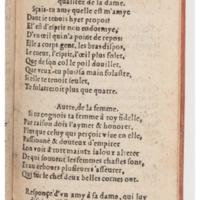 qualitez de sa dame.
Sçais-tu amy quelle est m'amye
Dont ie tenois hyer propos?
El' est d'esprit non endormye,
D'vn œil qui n'a point de repos:
Elle a corps gent, les bras dispos,
Le cœur, l'esprit, l'œil plus folet,
Que de son col le poil douillet.
Que veux-tu plus? sa main folastre,
Si elle te tenoit seulet,
Te folastreroit plus que quatre.
Autre, de la femme.
Si tu cognois ta femme à toy fidelle,
Par raison dois l'aymer & honorer,
Plus que celuy qui perçoit viure en elle,
Passionné & douteux d'empirer
Lon voit à tort maints ialoux alterer
De qui souuent les femmes chastes sont,
Et au rebours plusieurs s'asseurer,
Qui sur le chef deux belles cornes ont.
Responçe d'vn amy à sa dame, qui luy